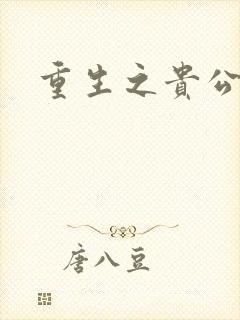 重生之貴公
唐八豆